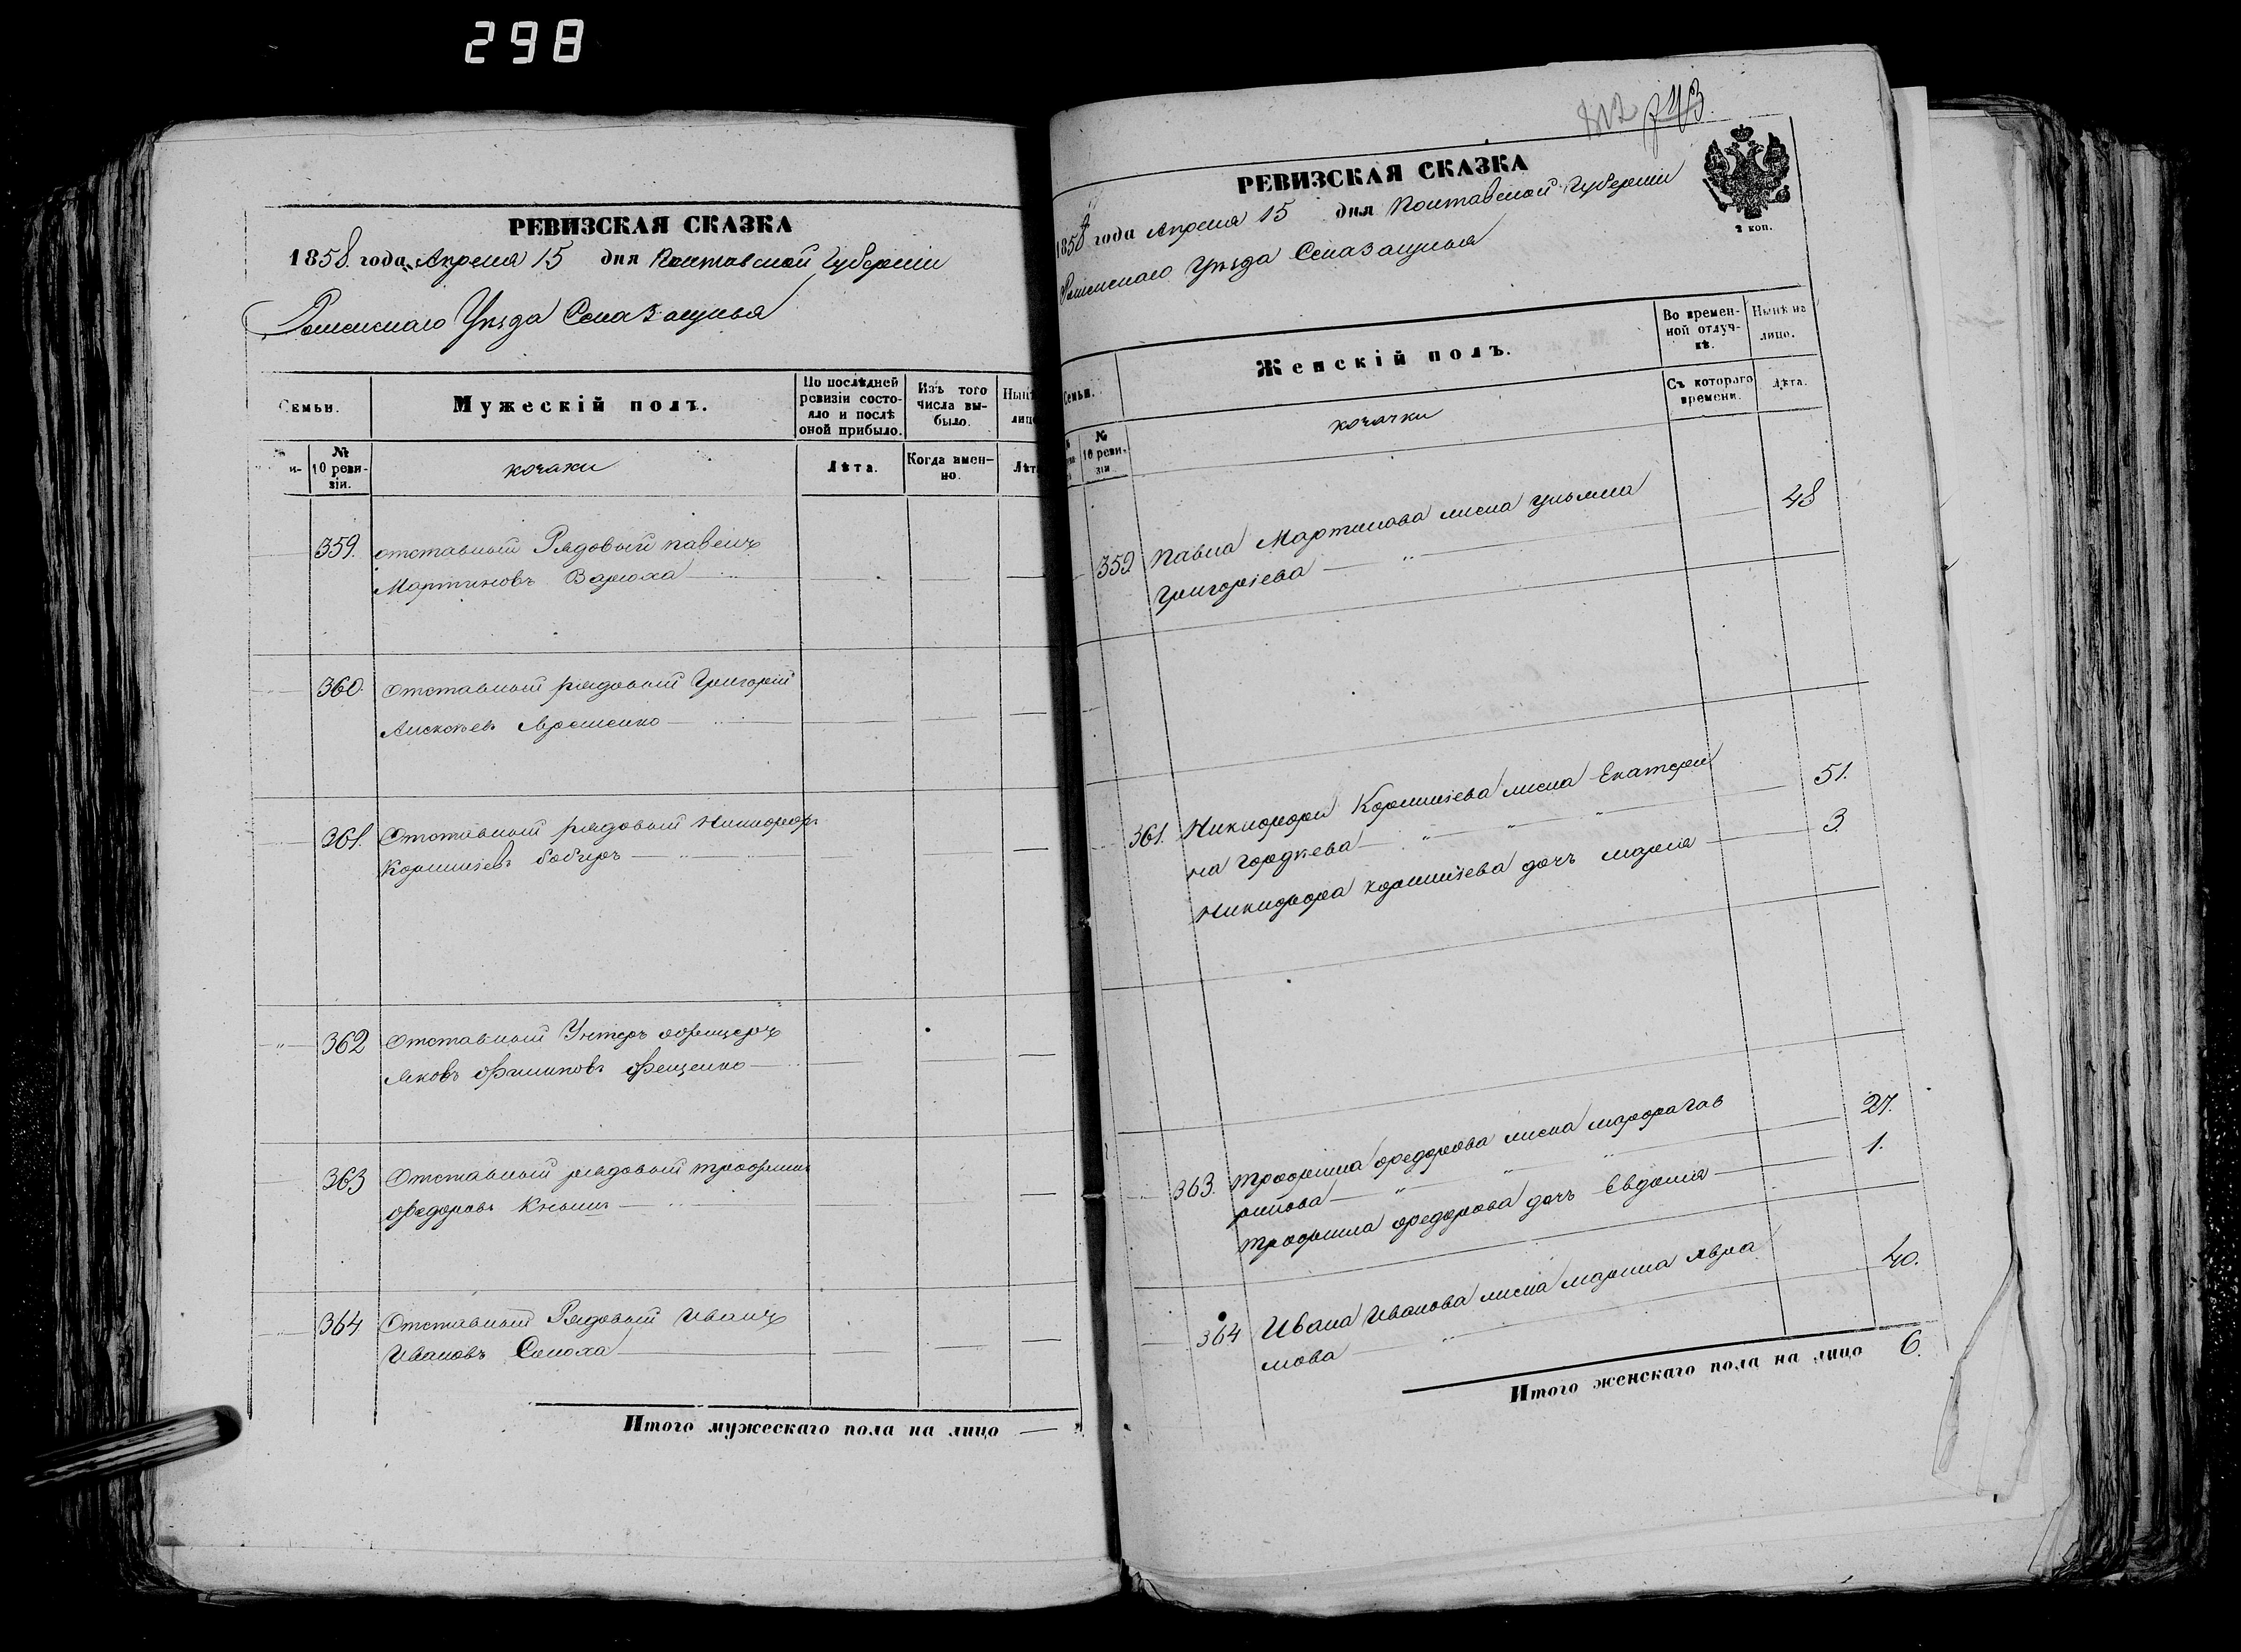 298
РЕВИЗСКАЯ СКАЗКА
1858. года Апреля 15 дня Полтавской Губернии
Роменскаго Уѣзда
Семьи.
Мужескій полъ.
По послѣдней ревизіи состояло и послѣ оной прибыло.
Изъ того числа выбыло.
Нынѣ
лицо
№ 10 ревизіи.
козаки
Лѣта.
Когда именно.
Лѣта
359. отставный Рядовый павелъ
Мартиновъ Варюха
360. Отставный рядовый Григорій
Ярошенко
361. Отставный рядовый Никифоръ
Корнѣевъ Бобыръ
362 Отставный Унтеръ офицеръ
Яковъ Филиповъ Фещенко
363 Отставный рядовый трофимъ
федоровъ Кнышъ
364 Отставный Рядовый Иванъ
Ивановъ Солоха
Итого мужескаго пола на лицо —
743.
РЕВИЗСКАЯ СКАЗКА
1858 года Апреля 15 дня Полтавской Губерніи
Роменскаго Уѣзда
2 коп.
Семьи.
Женскій полъ.
Во временной отлучкѣ.
Нынѣ на лицо.
№ 10 ревизіи
козачки
Съ котораго времени.
Лѣта.
359 Павла Мартинова жена Ульяна
Григоріева 48
361. Никифора Корніева жена Екатери
на Гордѣева 51.
Никифора корніева дочь марія 3
363. Трофима федорова жена марфа Гав
рилова 27.
трофима федорова дочь Евдокія 1.
364 Ивана Иванова жена марина Авра
мова 40.
Итого женскаго пола на лицо 6.